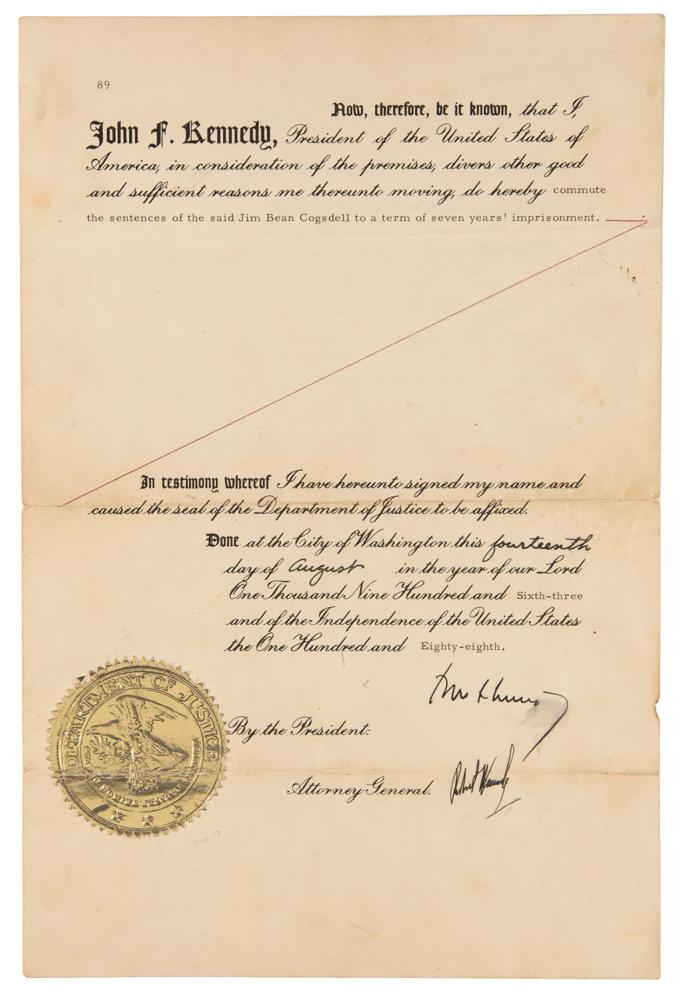 89
Now, therefore, be it known, that I,
John F. Kennedy, President of the United States of
America, in consideration of the premises, divers other good
and sufficient reasons me thereunto moving, do hereby commute
the sentences of the said Jim Bean Cogsdell to a term of seven years' imprisonment.
In testimony whereof I have hereunto signed my name and
caused the seal of the Department of Justice to be affixed.
Done at the City of Washington this fourteenth
day of August in the year of our Lord
One Thousand Nine Hundred and Sixth-three
and of the Independence of the United States
the One Hundred and Eighty-eighth.
By the President:
Attorney General. Robert Kennedy
DEPARTMENT OF JUSTICE